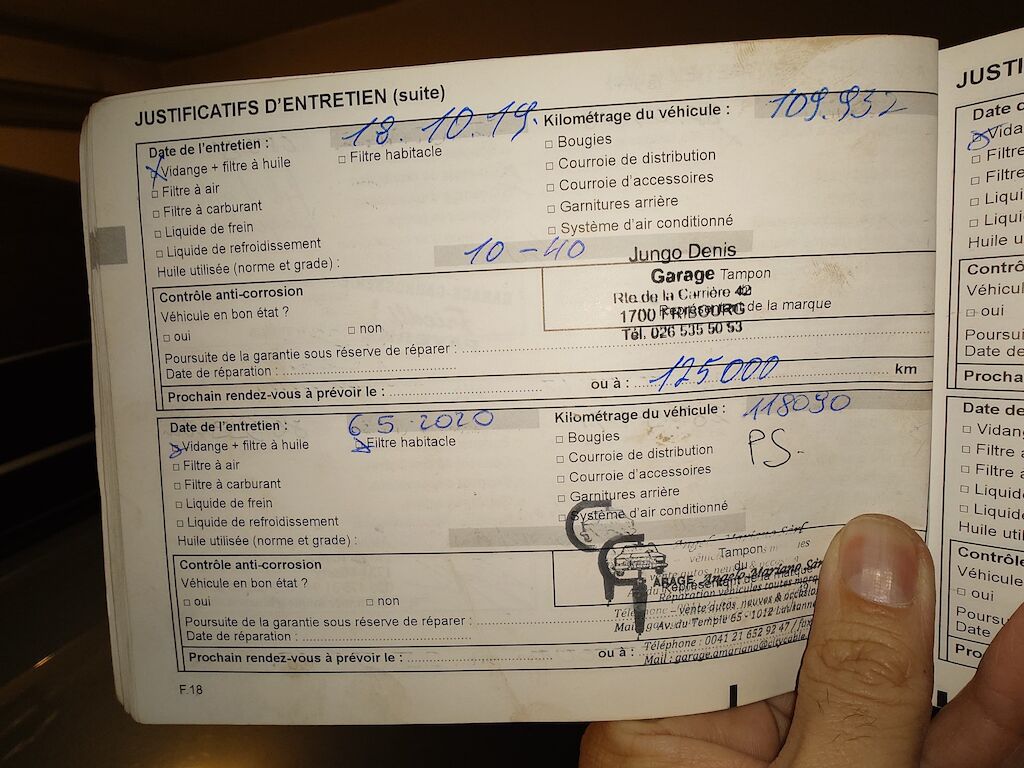 JUSTIFICATIFS D'ENTRETIEN (suite)
Date de l'entretien : 18.10.19. Kilométrage du véhicule : 109.932
Vidange + filtre à huile Filtre habitacle Bougies
Filtre à air Courroie de distribution
Filtre à carburant Courroie d'accessoires
Liquide de frein Garnitures arrière
Liquide de refroidissement Système d'air conditionné
Huile utilisée (norme et grade) : 10-40
Jungo Denis
Garage Tampon
Rte de la Carrière 42
1700 FRIBOURG Représentant de la marque
Tél. 026 535 50 53
Contrôle anti-corrosion
Véhicule en bon état ?
oui non
Poursuite de la garantie sous réserve de réparer :
Date de réparation :
Prochain rendez-vous à prévoir le : ou à : 125000 km
Date de l'entretien : 6.5.2020 Kilométrage du véhicule : 118090
Vidange + filtre à huile Filtre habitacle Bougies PS-
Filtre à air Courroie de distribution
Filtre à carburant Courroie d'accessoires
Liquide de frein Garnitures arrière
Liquide de refroidissement Système d'air conditionné
Huile utilisée (norme et grade) :
Contrôle anti-corrosion
Véhicule en bon état ?
oui non
Tampon
du
Représentant de la marque
GARAGE Angelo Mariano Sàrl
Réparation véhicules toutes marques
vente autos neuves & occasions
Av. du Temple 65 - 1012 Lausanne
Téléphone : 0041 21 652 92 47 / fax
Mail : garage.amariano@citycable.
Poursuite de la garantie sous réserve de réparer :
Date de réparation :
Prochain rendez-vous à prévoir le : ou à :
F.18
JUSTI
Date d
Vida
Filtre
Filtre
Liqui
Liqui
Huile u
Contrô
Véhicul
oui
Poursui
Date de
Procha
Date de
Vidang
Filtre à
Filtre a
Liquid
Liquid
Huile uti
Contrôle
Véhicule
oui
Poursu
Date
Pro